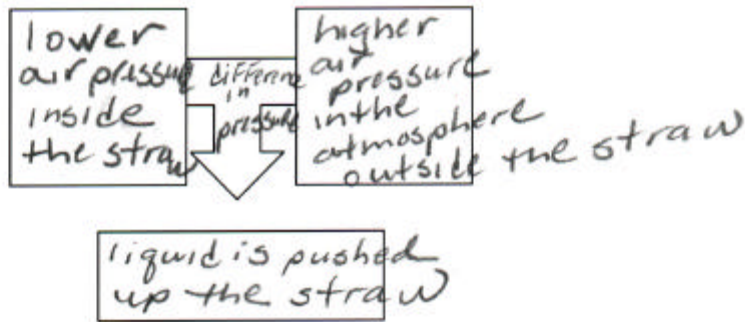 lower
air pressure
inside
the straw
difference
in
pressure
higher
air
pressure
in the
atmosphere
outside the straw
liquid is pushed
up the straw